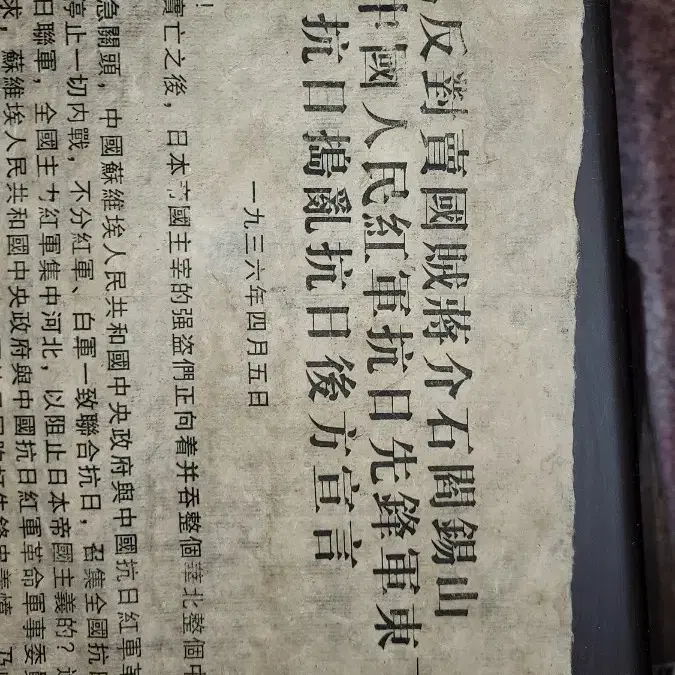 反對賣國賊蔣介石閻錫山
中國人民紅軍抗日先鋒軍東
抗日搗亂抗日後方宣言
一九三六年四月五日
！
實亡之後，日本帝國主宰的强盗們正向着并吞整個華北整個中
急關頭，中國蘇維埃人民共和國中央政府與中國抗日紅軍革
停止一切内戰，不分紅軍、白軍一致聯合抗日，召集全國抗
日聯軍，全國主力紅軍集中河北，以阻止日本帝國主義的？
求，蘇維埃人民共和國中央政府與中國抗日紅軍革命軍事委